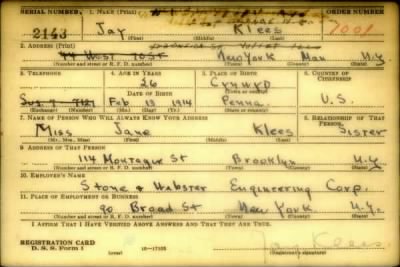 SERIAL NUMBER 1. NAME (Print) ORDER NUMBER
2143 Jay Klees 7001
(First) (Middle) (Last)
2. ADDRESS (Print)
West 10 St New York Man N.Y
(Number and street or R. F. D. number) (Town) (County) (State)
3. TELEPHONE 4. AGE IN YEARS 5. PLACE OF BIRTH 6. COUNTRY OF CITIZENSHIP
26 Cynwyd
DATE OF BIRTH (Town or county)
Feb 13 1914 Penna. U.S.
(Exchange) (Number) (Mo.) (Day) (Yr.) (State or country)
7. NAME OF PERSON WHO WILL ALWAYS KNOW YOUR ADDRESS 8. RELATIONSHIP OF THAT PERSON
Miss Jane Klees Sister
(Mr., Mrs., Miss) (First) (Middle) (Last)
9. ADDRESS OF THAT PERSON
114 Montague St Brooklyn N.Y
(Number and street or R. F. D. number) (Town) (County) (State)
10. EMPLOYER'S NAME
Stone & Webster Engineering Corp.
11. PLACE OF EMPLOYMENT OR BUSINESS
90 Broad St New York N.Y.
(Number and street or R. F. D. number) (Town) (County) (State)
I AFFIRM THAT I HAVE VERIFIED ABOVE ANSWERS AND THAT THEY ARE TRUE.
REGISTRATION CARD
D. S. S. Form 1 (over) 16—17105 Jay Klees
(Registrant's signature)